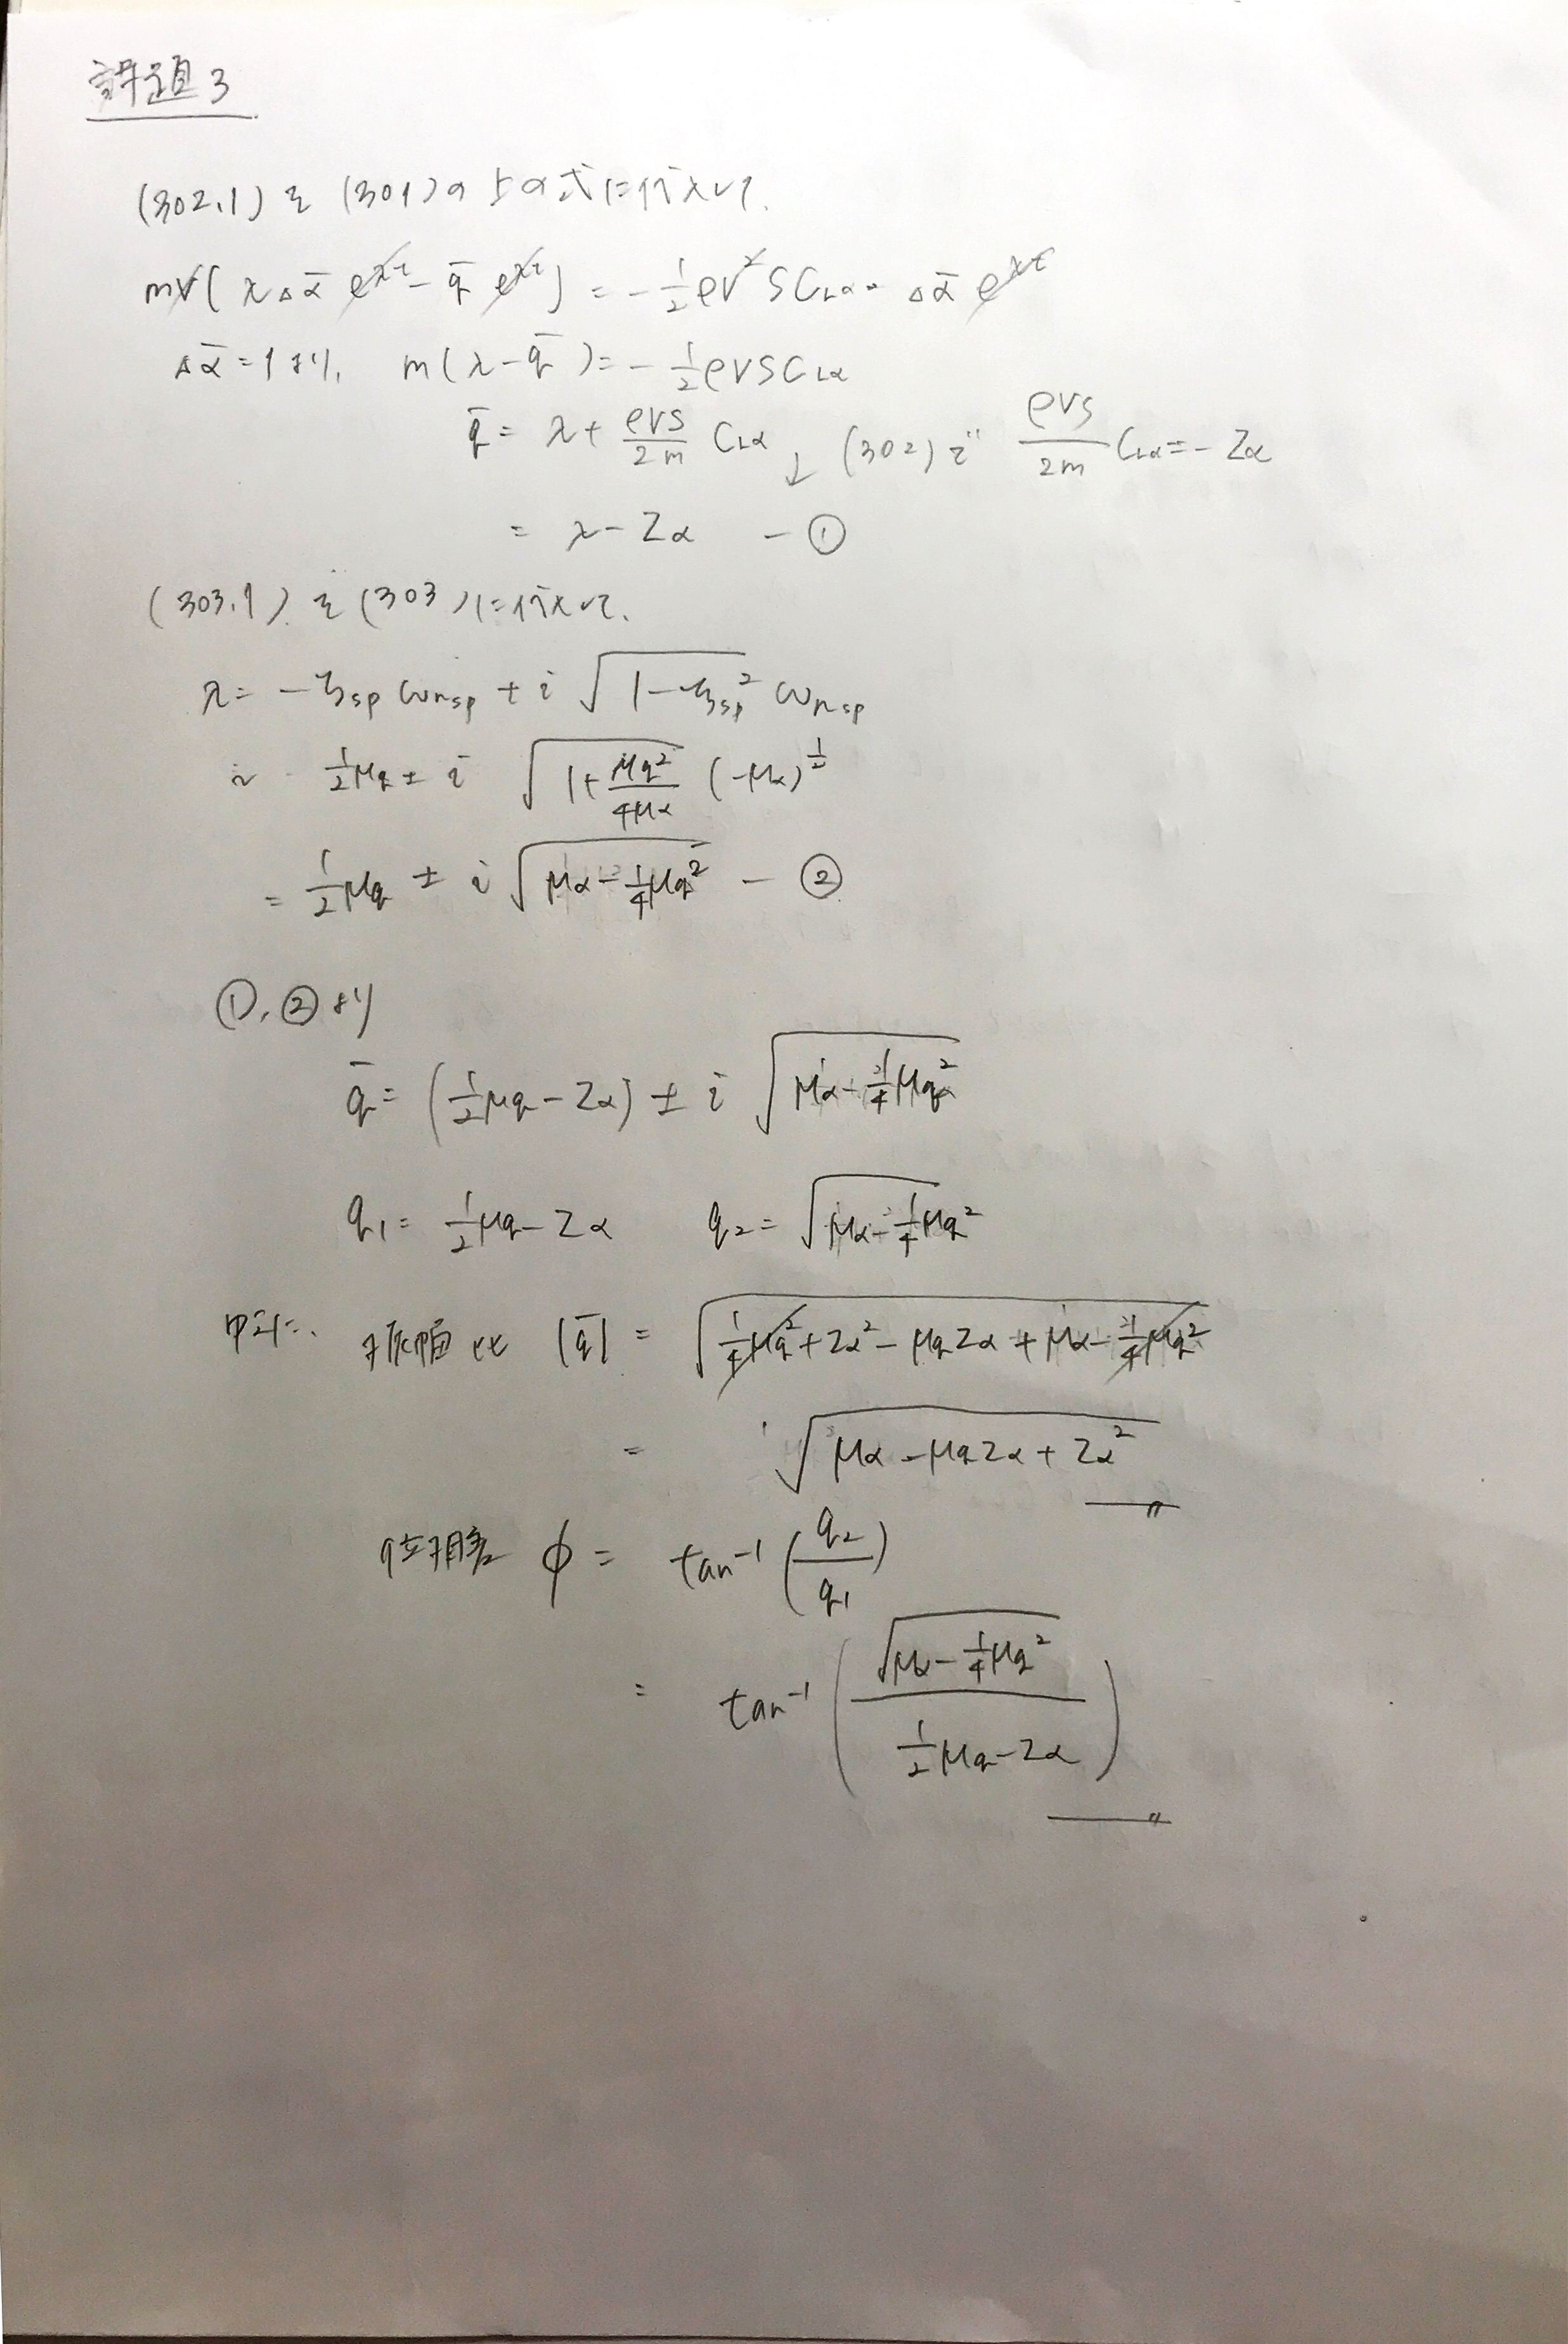 課題3
(302.1)を(301)の上の式に代入して.
mV(λΔᾱe^{λt} - q̄ e^{λt}) = -½ρV²SC_{Lα}・Δᾱe^{λt}
Δᾱ=1より, m(λ-q̄) = -½ρVSC_{Lα}
q̄ = λ + ρVS/2m C_{Lα} ↓ (302)で ρVS/2m C_{Lα} = -Zα
= λ - Zα -①
(303.1)を(303)に代入して.
λ = -ζsp ωnsp ± i√(1-ζsp²) ωnsp
≈ ½Mq ± i √(1+Mq²/4Mα) (-Mα)^{1/2}
= ½Mq ± i√(Mα-¼Mq²) -②
①,②より
q̄ = (½Mq-Zα) ± i√(Mα-¼Mq²)
q₁ = ½Mq-Zα q₂ = √(Mα-¼Mq²)
ゆえに. 振幅比 |q̄| = √(¼Mq²+Zα²-MqZα+Mα-¼Mq²)
= √(Mα-MqZα+Zα²)
位相差 φ = tan⁻¹(q₂/q₁)
= tan⁻¹(√(Mα-¼Mq²) / (½Mq-Zα))